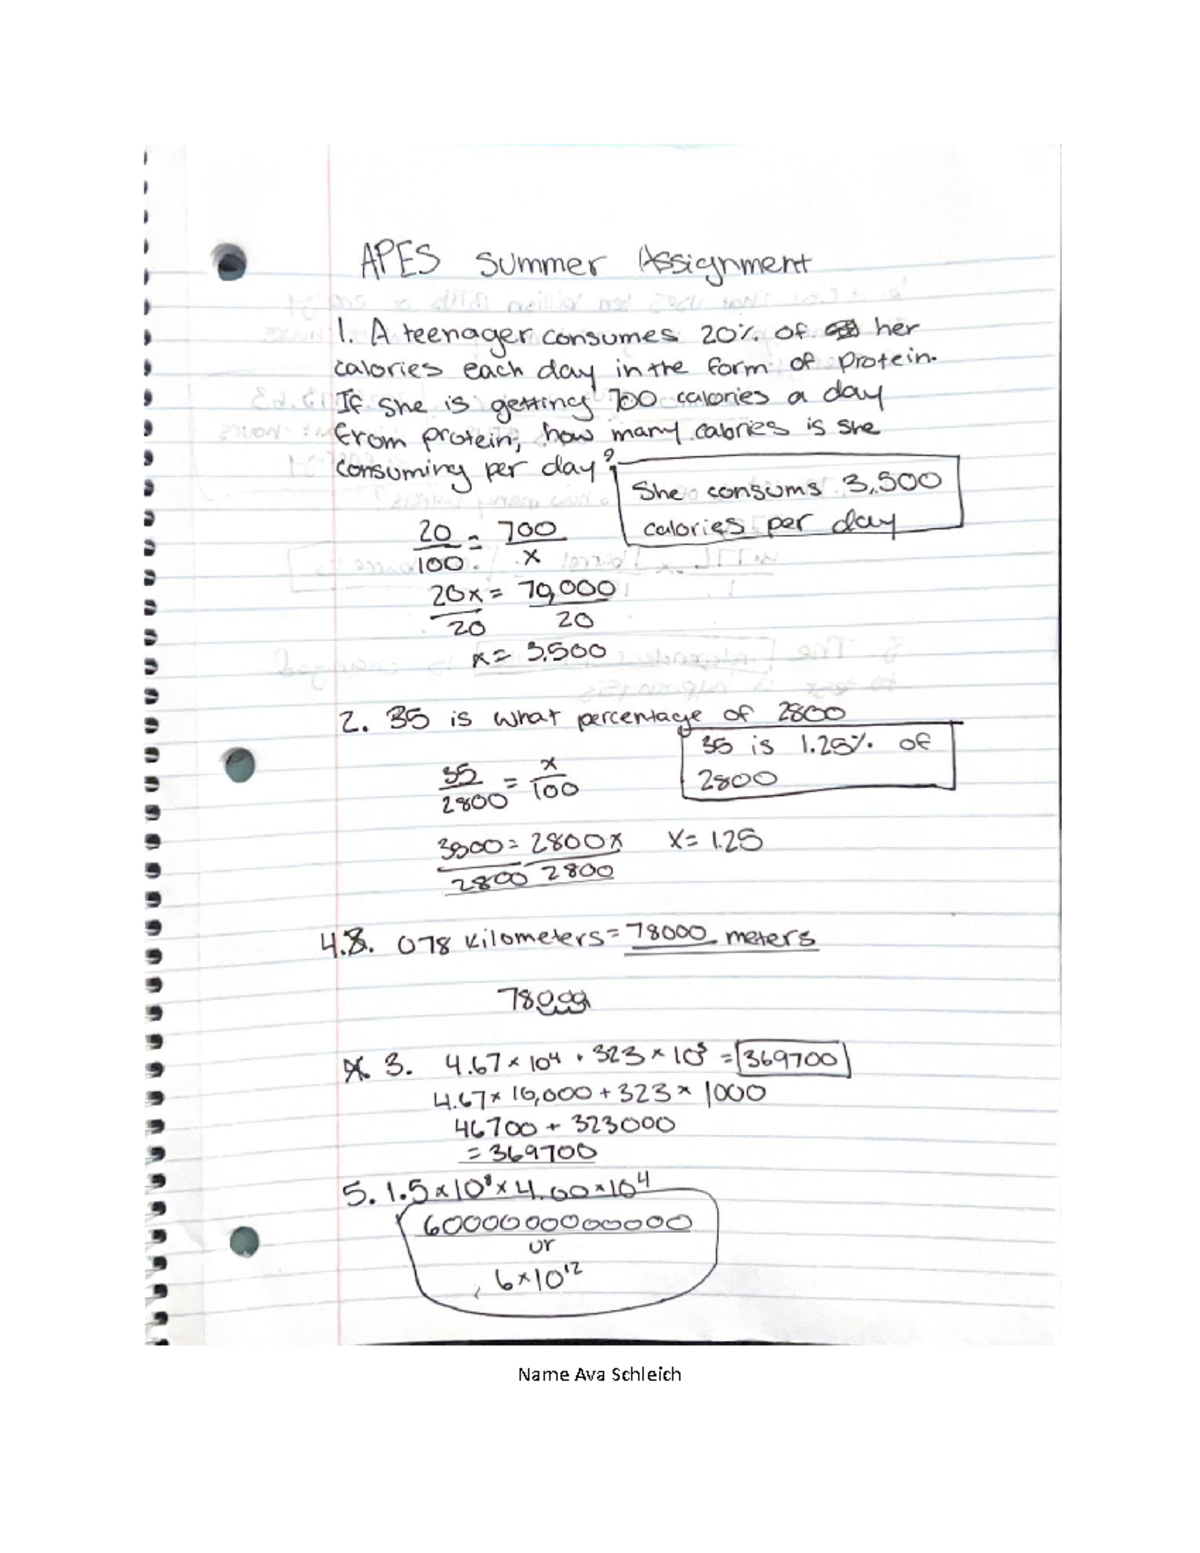 APES Summer Assignment
1. A teenager consumes 20% of her
calories each day in the form of protein.
If she is getting 700 calories a day
from protein, how many calories is she
consuming per day?
She consums 3,500
calories per day
20/100 = 700/x
20x/20 = 70,000/20
x = 3,500
2. 35 is what percentage of 2800
35 is 1.25% of
2800
35/2800 = x/100
3500/2800 = 2800x/2800 x = 1.25
4. 078 kilometers = 78000 meters
78000
3. 4.67 × 10⁴ + 323 × 10³ = 369700
4.67 × 10,000 + 323 × 1000
46700 + 323000
= 369700
5. 1.5 × 10⁸ × 4.00 × 10⁴
6000000000000
or
6 × 10¹²
Name Ava Schleich